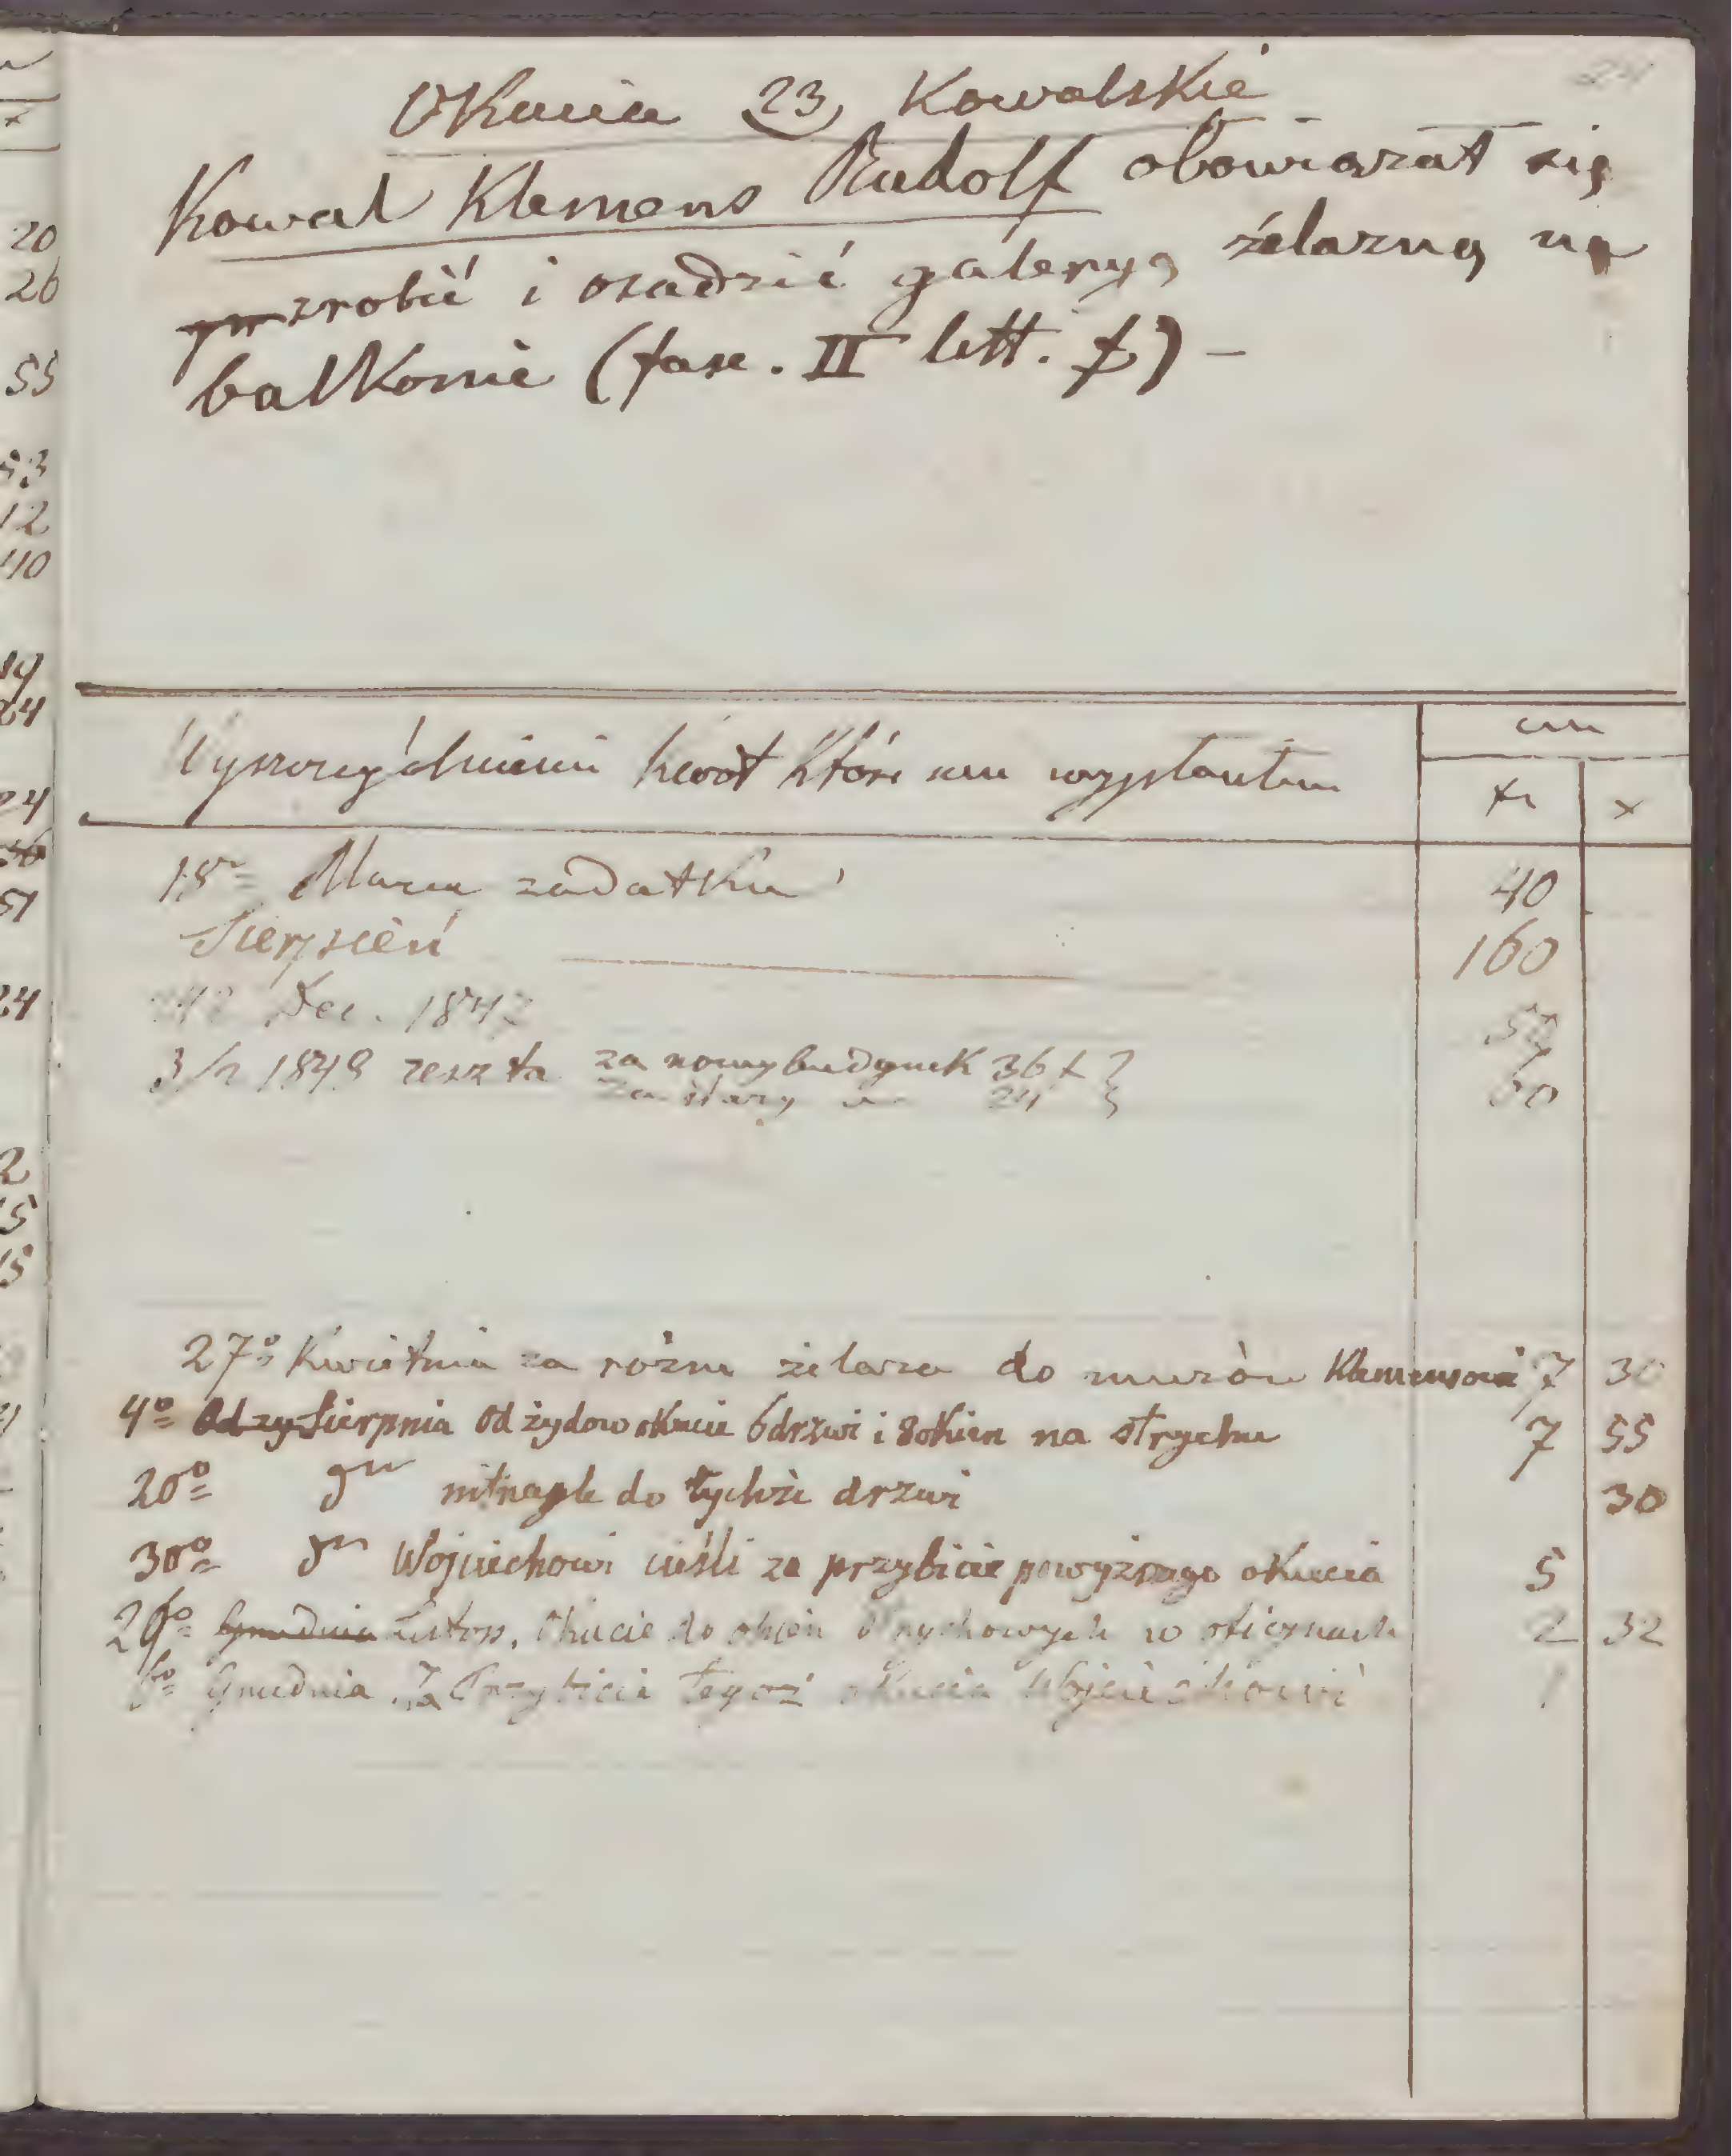 24
Okucia 23 Kowalskie
Kowal Klemens Rudolf obowiązał się
zrobić i osadzić galeryą żelazną na
balkonie (fasc. II litt. f) —
Wyszczególnienie kwot które mu wypłaciłem
cm
fr x
15º Marca zadatku 40
Sierpień 160
Dec. 1847
3/2 1848 reszta za nowy budynek 36 f } 60
za stary 24
27º Kwietnia za różne żelaza do murów Klemensowi 7 30
4º Od zy Sierpnia od żydów okucie 6 drzwi i 8 okien na strychu 7 55
20º do tychże drzwi 30
30º Wojciechowi cieśli za przybicie powyższego okucia 5
Grudnia Listop. Okucie do okien strychowych w oficynach 2 32
Grudnia Za Przybicie tegoż okucia Wojciechowi 1
20
26
55
53
12
40
19
24
51
24
2
15
15